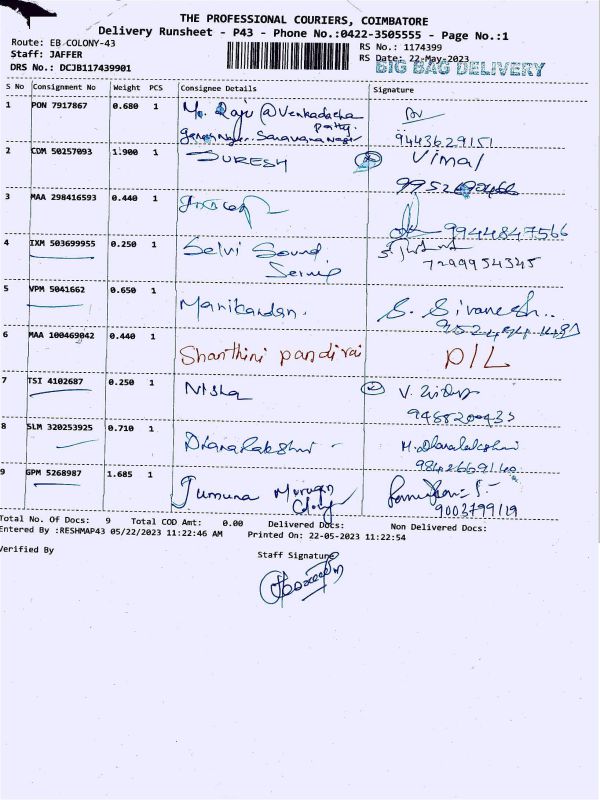 THE PROFESSIONAL COURIERS, COIMBATORE
Delivery Runsheet - P43 - Phone No.:0422-3505555 - Page No.:1
Route: EB COLONY-43
RS No.: 1174399
Staff: JAFFER
RS Date: 22-May-2023
DRS No.: DCJB117439901
BIG BAG DELIVERY
S No Consignment No Weight PCS Consignee Details Signature
1 PON 7917867 0.680 1 Mo. Raju @ Venkadacha
Patty.
Saravana Nagar
9443629151
2 CDM 50257093 1.900 1 SURESH Vimal
3 MAA 298416593 0.440 1
9944847566
4 IXM 503699955 0.250 1 Selvi Sound
Service 7299954345
5 VPM 5041662 0.650 1 Manikandan. S. Sivanesh..
6 MAA 100469042 0.440 1 Shanthini pandirai D/L
7 TSI 4102687 0.250 1 Nisha
8 SLM 320253925 0.710 1 Dhanalakshmi - M. Dhanalakshmi
9 GPM 5268987 1.685 1 Jumuna Murugan
Colony
9003799119
Total No. Of Docs: 9 Total COD Amt: 0.00 Delivered Docs: Non Delivered Docs:
Entered By :RESHMAP43 05/22/2023 11:22:46 AM Printed On: 22-05-2023 11:22:54
Verified By
Staff Signature